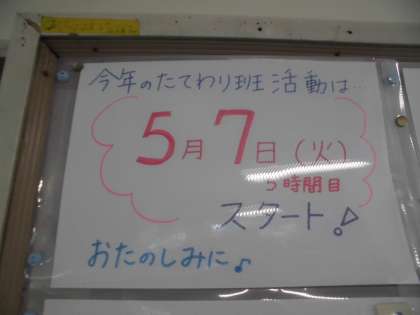 今年のたてわり班活動は…
5月7日(火)
5時間目
スタート!
おたのしみに♪